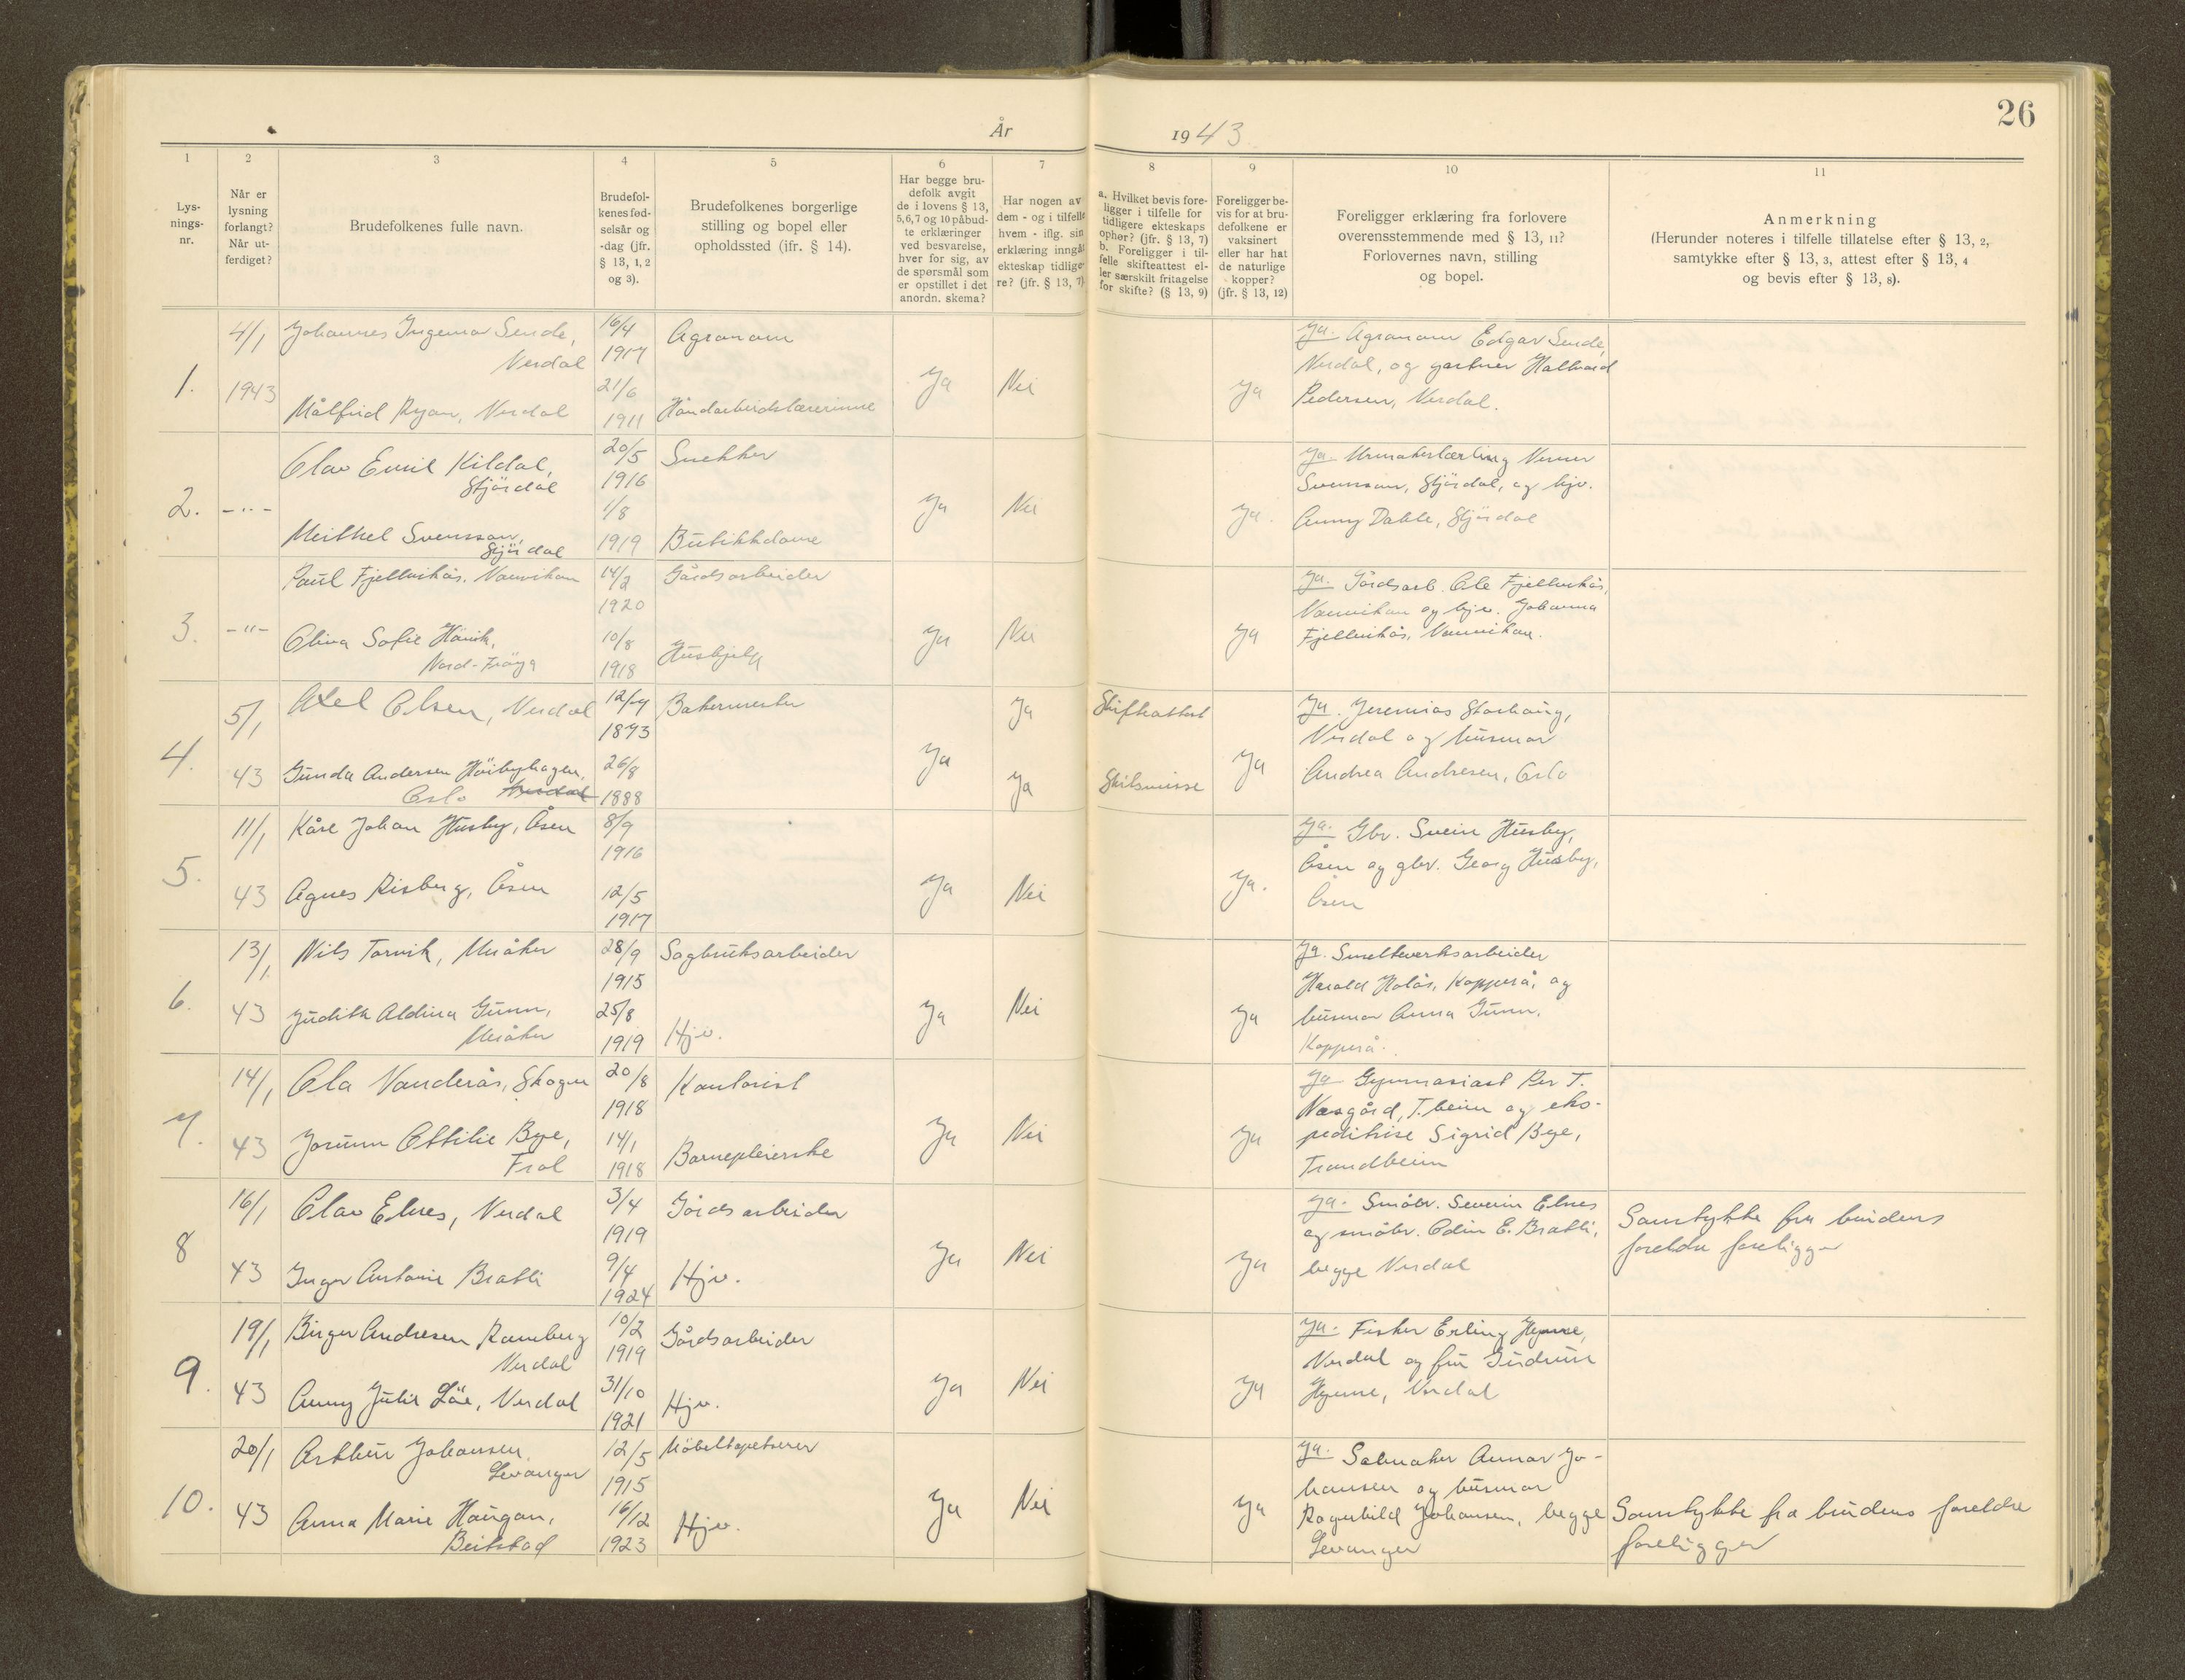 26
År 1943
1 2 3 4 5 6 7 8 9 10 11
Lys-
nings-
nr.
Når er
lysning
forlangt?
Når ut-
ferdiget?
Brudefolkenes fulle navn.
Brudefol-
kenes fød-
selsår og
-dag (jfr.
§ 13, 1, 2
og 3).
Brudefolkenes borgerlige
stilling og bopel eller
opholdssted (jfr. § 14).
Har begge bru-
defolk avgit
de i lovens § 13,
5,6,7 og 10 påbud-
te erklæringer
ved besvarelse,
hver for sig, av
de spørsmål som
er opstillet i det
anordn. skema?
Har nogen av
dem - og i tilfelle
hvem - iflg. sin
erklæring inngåt
ekteskap tidlige-
re? (jfr. § 13, 7)
a. Hvilket bevis fore-
ligger i tilfelle for
tidligere ekteskaps
ophør? (jfr. § 13, 7)
b. Foreligger i til-
felle skifteattest el-
ler særskilt fritagelse
for skifte? (§ 13, 9)
Foreligger be-
vis for at bru-
defolkene er
vaksinert
eller har hat
de naturlige
kopper?
(jfr. § 13, 12)
Foreligger erklæring fra forlovere
overensstemmende med § 13, 11?
Forlovernes navn, stilling
og bopel.
Anmerkning
(Herunder noteres i tilfelle tillatelse efter § 13, 2,
samtykke efter § 13, 3, attest efter § 13, 4
og bevis efter § 13, 8).
1.
4/1
1943
Johannes Ingemar Sende,
Verdal
Målfrid Ryan, Verdal
16/4
1917
21/6
1911
Agronom
Håndarbeidslærerinne
Ja
Nei
Ja
Ja. Agronom Edgar Sende,
Verdal, og gartner Hallvard
Pedersen, Verdal.
2.
-"-
Olav Emil Kildal,
Stjørdal
Meithel Svensson,
Stjørdal
20/5
1916
1/8
1919
Snekker
Butikkdame
Ja
Nei
Ja.
Ja. Urmakerlærling Verner
Svensson, Stjørdal, og hjv.
Anny Dahle, Stjørdal
3.
-"-
Paul Fjellvikås, Vanvikan
Olina Sofie
Nord-Frøya
14/2
1920
10/8
1918
Gårdsarbeider
Hushjelp
Ja
Nei
Ja
Ja. Gårdsarb. Ole Fjellvikås,
Vanvikan og hjv. Johanna
Fjellvikås, Vanvikan.
4.
5/1
43
Axel Olsen, Verdal
Gunda Andersen Høibyhagen,
Oslo
12/9
1873
26/8
1888
Bakermester
Ja
Ja
Ja
Skifteattest
Skilsmisse
Ja
Ja. Jeremias Storhaug,
Verdal og husmor
Andrea Andresen, Oslo
5.
11/1
43
Kåre Johan Husby, Åsen
Agnes Risberg, Åsen
8/9
1916
12/5
1917
Ja
Nei
Ja.
Ja. Gbr. Svein Husby,
Åsen og gbr. Georg Husby,
Åsen
6.
13/1
43
Nils Torvik, Meråker
Judith Aldina Gunn,
Meråker
28/9
1915
25/8
1919
Sagbruksarbeider
Hjv.
Ja
Nei
Ja
Ja. Smelteverksarbeider
Harald Holås, Kopperå, og
husmor Anna Gunn,
Kopperå.
7.
14/1
43
Ola Vanderås, Skogn
Jorunn Ottilie Bye,
Frol
20/8
1918
14/1
1918
Kontorist
Barnepleierske
Ja
Nei
Ja
Ja Gymnasiast Per T.
Næsgård, T.heim og eks-
peditrise Sigrid Bye,
Trondheim
8
16/1
43
Olav Elnes, Verdal
Inger Antonie Bratli
3/4
1919
9/4
1924
Gårdsarbeider
Hjv.
Ja
Nei
Ja
Ja. Småbr. Severin Elnes
og småbr. Odin E. Bratli,
begge Verdal
Samtykke fra brudens
foreldre foreligger
9.
19/1
43
Birger Andresen Ramberg
Verdal
Anny Julie Løe, Verdal
10/2
1919
31/10
1921
Gårdsarbeider
Hjv.
Ja
Nei
Ja
Ja. Fisker Erling Hynne,
Verdal og fru Gudrun
Hynne, Verdal
10.
20/1
43
Arthur Johansen
Levanger
Anna Marie Haugan,
Beitstad
12/5
1915
16/12
1923
Møbeltapetserer
Hjv.
Ja
Nei
Ja
Ja. Salmaker Annar Jo-
hansen og husmor
Ragnhild Johansen, begge
Levanger
Samtykke fra brudens foreldre
foreligger